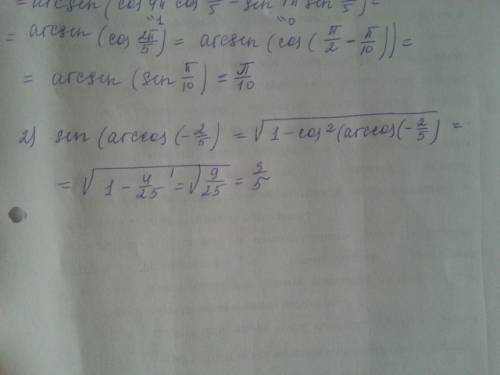 = arcsen (cos 4π cos π/5 − sen 4π sen π/5) =
"1 "0
= arcsen (cos 2π/5) = arcsen (cos (π/2 − π/10)) =
= arcsen (sen π/10) = π/10
2) sen (arccos (−2/5) = √(1 − cos² (arccos (−2/5) =
= √(1 − 4/25) = √(9/25) = 3/5